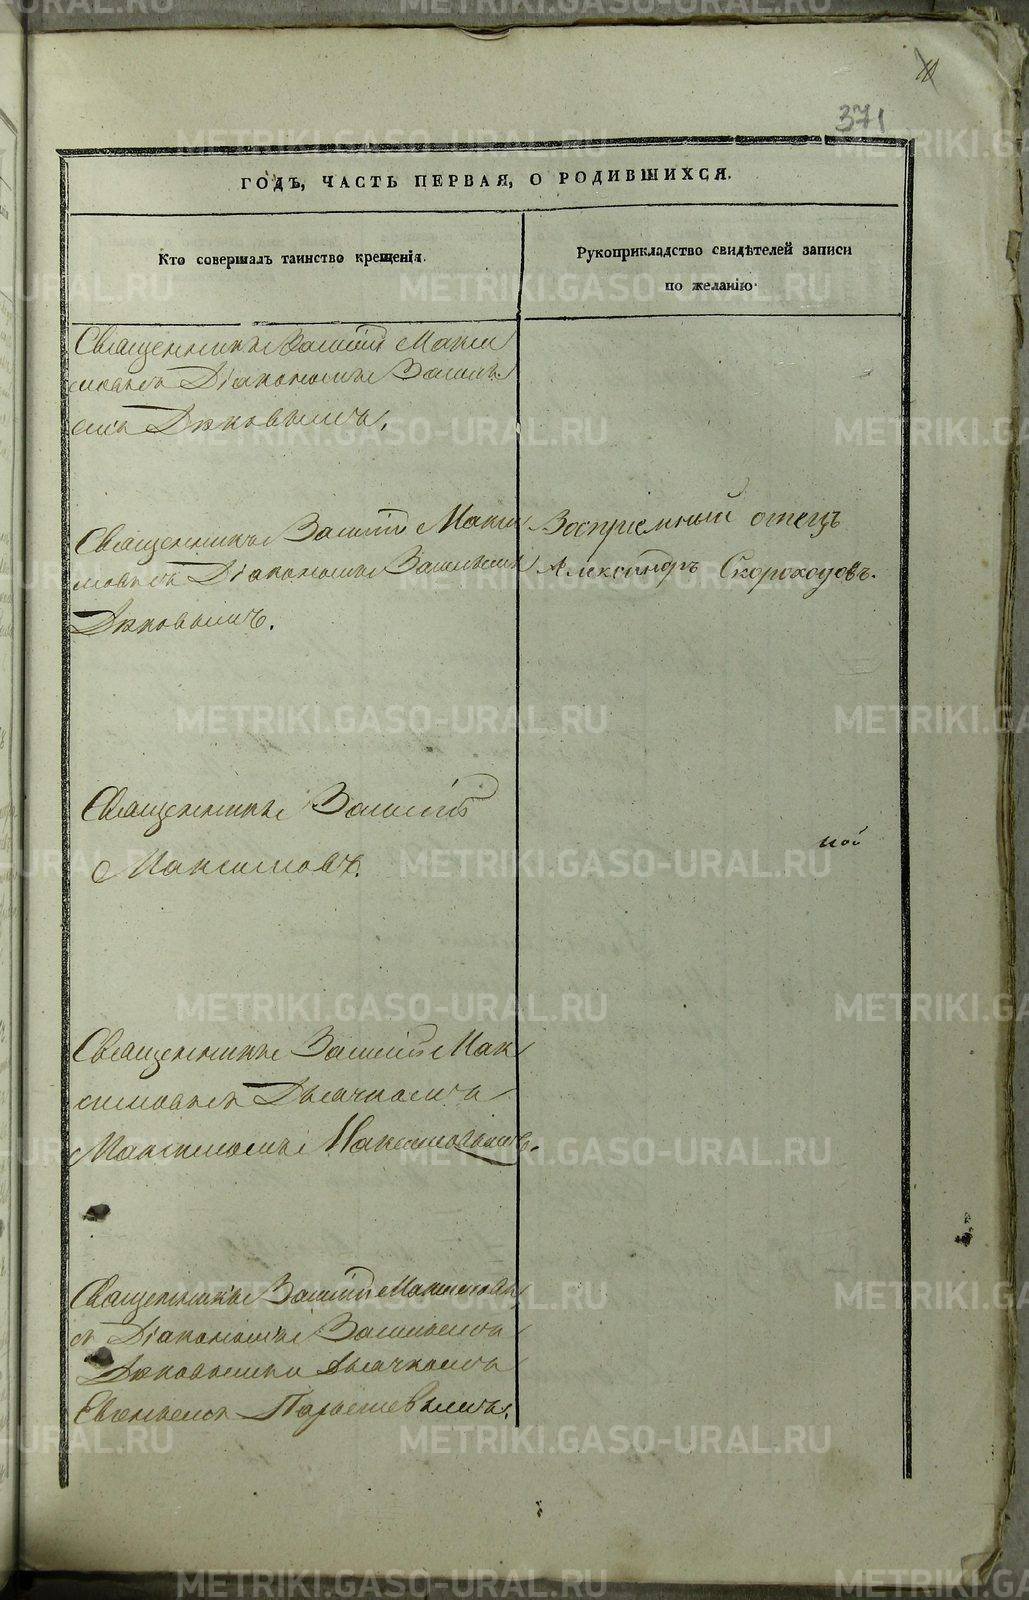 371
ГОДЪ, ЧАСТЬ ПЕРВАЯ, О РОДИВШИХСЯ.
Кто совершалъ таинство крещенія.
Рукоприкладство свидѣтелей записи
по желанію.
Священникъ Василій Макси
мовъ съ Діакономъ Василь
емъ Дюковымъ.
Священникъ Василій Макси
мовъ съ Діакономъ Васильемъ
Дюковымъ.
Воспріемный отецъ
Александръ Скороходовъ.
Священникъ Василій
Максимовъ.
ной
Священникъ Василій Мак
симовъ съ Дьячкомъ
Максимомъ Максимовымъ.
Священникъ Василій Максимовъ
съ Діакономъ Васильемъ
Дюковымъ и Дьячкомъ
METRIKI.GASO-URAL.RU